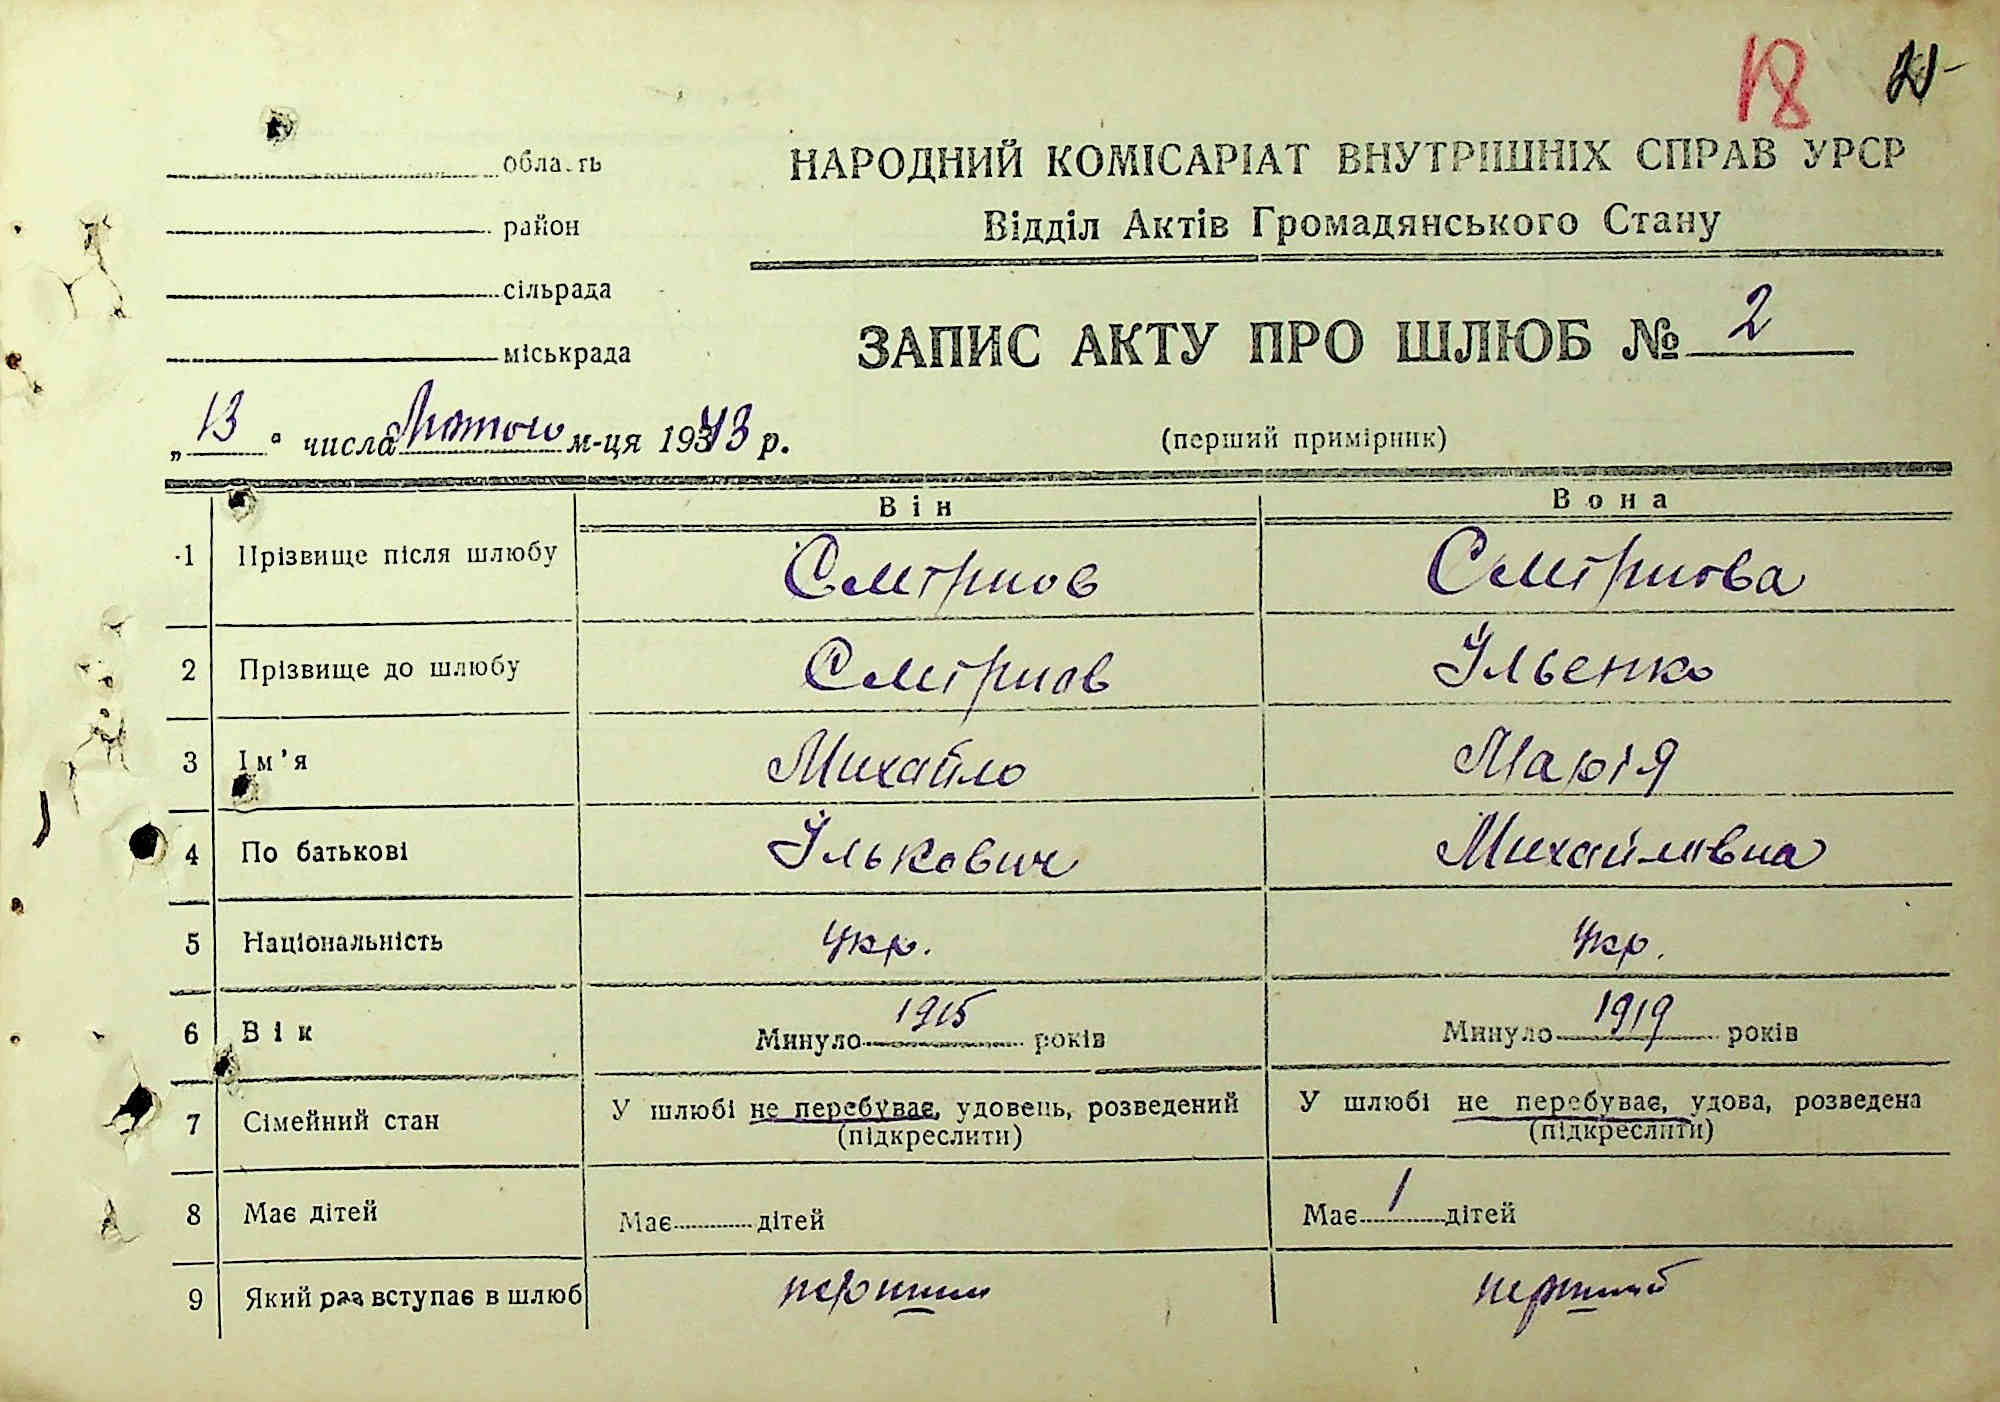 18 21
область
район
сільрада
міськрада
НАРОДНИЙ КОМІСАРІАТ ВНУТРІШНІХ СПРАВ УРСР
Відділ Актів Громадянського Стану
ЗАПИС АКТУ ПРО ШЛЮБ № 2
„13“ числа Лютого м-ця 1943 р.
(перший примірник)
Він Вона
1 Прізвище після шлюбу Смірнов Смірнова
2 Прізвище до шлюбу Смірнов Ільенко
3 Ім'я Михайло Марія
4 По батьковіІлькович Михайлівна
5 Національність укр. укр.
6 Вік Минуло 1915 років Минуло 1919 років
7 Сімейний стан У шлюбі не перебуває, удовець, розведений У шлюбі не перебуває, удова, розведена
(підкреслити) (підкреслити)
8 Має дітей Має дітей Має 1 дітей
9 Який раз вступає в шлюб перший перший